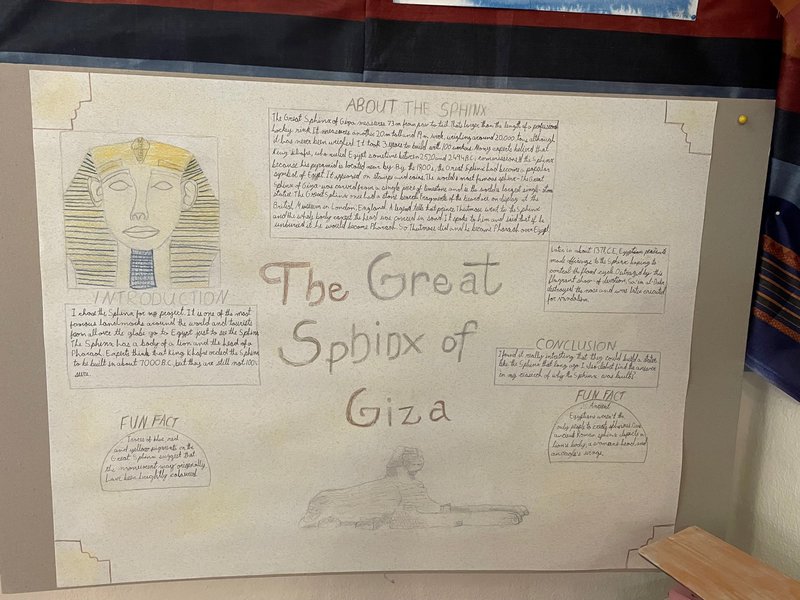 ABOUT THE SPHINX
The Great Sphinx of Giza measures 73 m from paw to tail. That's larger than the length of a professional
hockey rink. It measures another 20 m tall and 19 m wide, weighing around 20,000 tons, although
it has never been weighed. It took 3 years to build with 100 workers. Many experts believed that
King Khafre, who ruled Egypt sometime between 2520 and 2494 B.C. commissioned the Sphinx
because his pyramid is located near by. By the 1800s, the Great Sphinx had become a popular
symbol of Egypt. It appeared on stamps and coins. The world's most famous sphinx - The Great
Sphinx of Giza - was carved from a single piece of limestone and is the world's largest single-stone
statue. The Great Sphinx once had a stone beard. Fragments of the beard are on display at the
British Museum in London, England. A legend tells that prince Thutmose went to the Sphinx
and the whole body except the head was covered in sand. It spoke to him and said that if he
unburied it he would become Pharaoh. So Thutmose did and he became Pharaoh over Egypt.
Later in about 1378 C.E. Egyptian peasants
made offerings to the Sphinx hoping to
control the flood cycle. Outraged by this
flagrant show of devotion, Sa'im al-Dahr
destroyed the nose and was later executed
for vandalism.
The Great
Sphinx of
Giza
INTRODUCTION
I chose the Sphinx for my project. It is one of the most
famous landmarks around the world and tourists
from all over the globe go to Egypt just to see the Sphinx.
The Sphinx has a body of a lion and the head of a
Pharaoh. Experts think that King Khafre ordered the Sphinx
to be built in about 7000 B.C. but they are still not 100%
sure.
CONCLUSION
I found it really interesting that they could build a statue
like the Sphinx that long ago. I also didn't find the answer
in my research of why the Sphinx was built.
FUN FACT
Traces of blue, red
and yellow pigments on the
Great Sphinx suggest that
the monument may originally
have been brightly coloured.
FUN FACT
Ancient
Egyptians weren't the
only people to create sphinxes.
ancient Roman sphinx depicts a
lion's body, a woman's head, and
an eagle's wings.